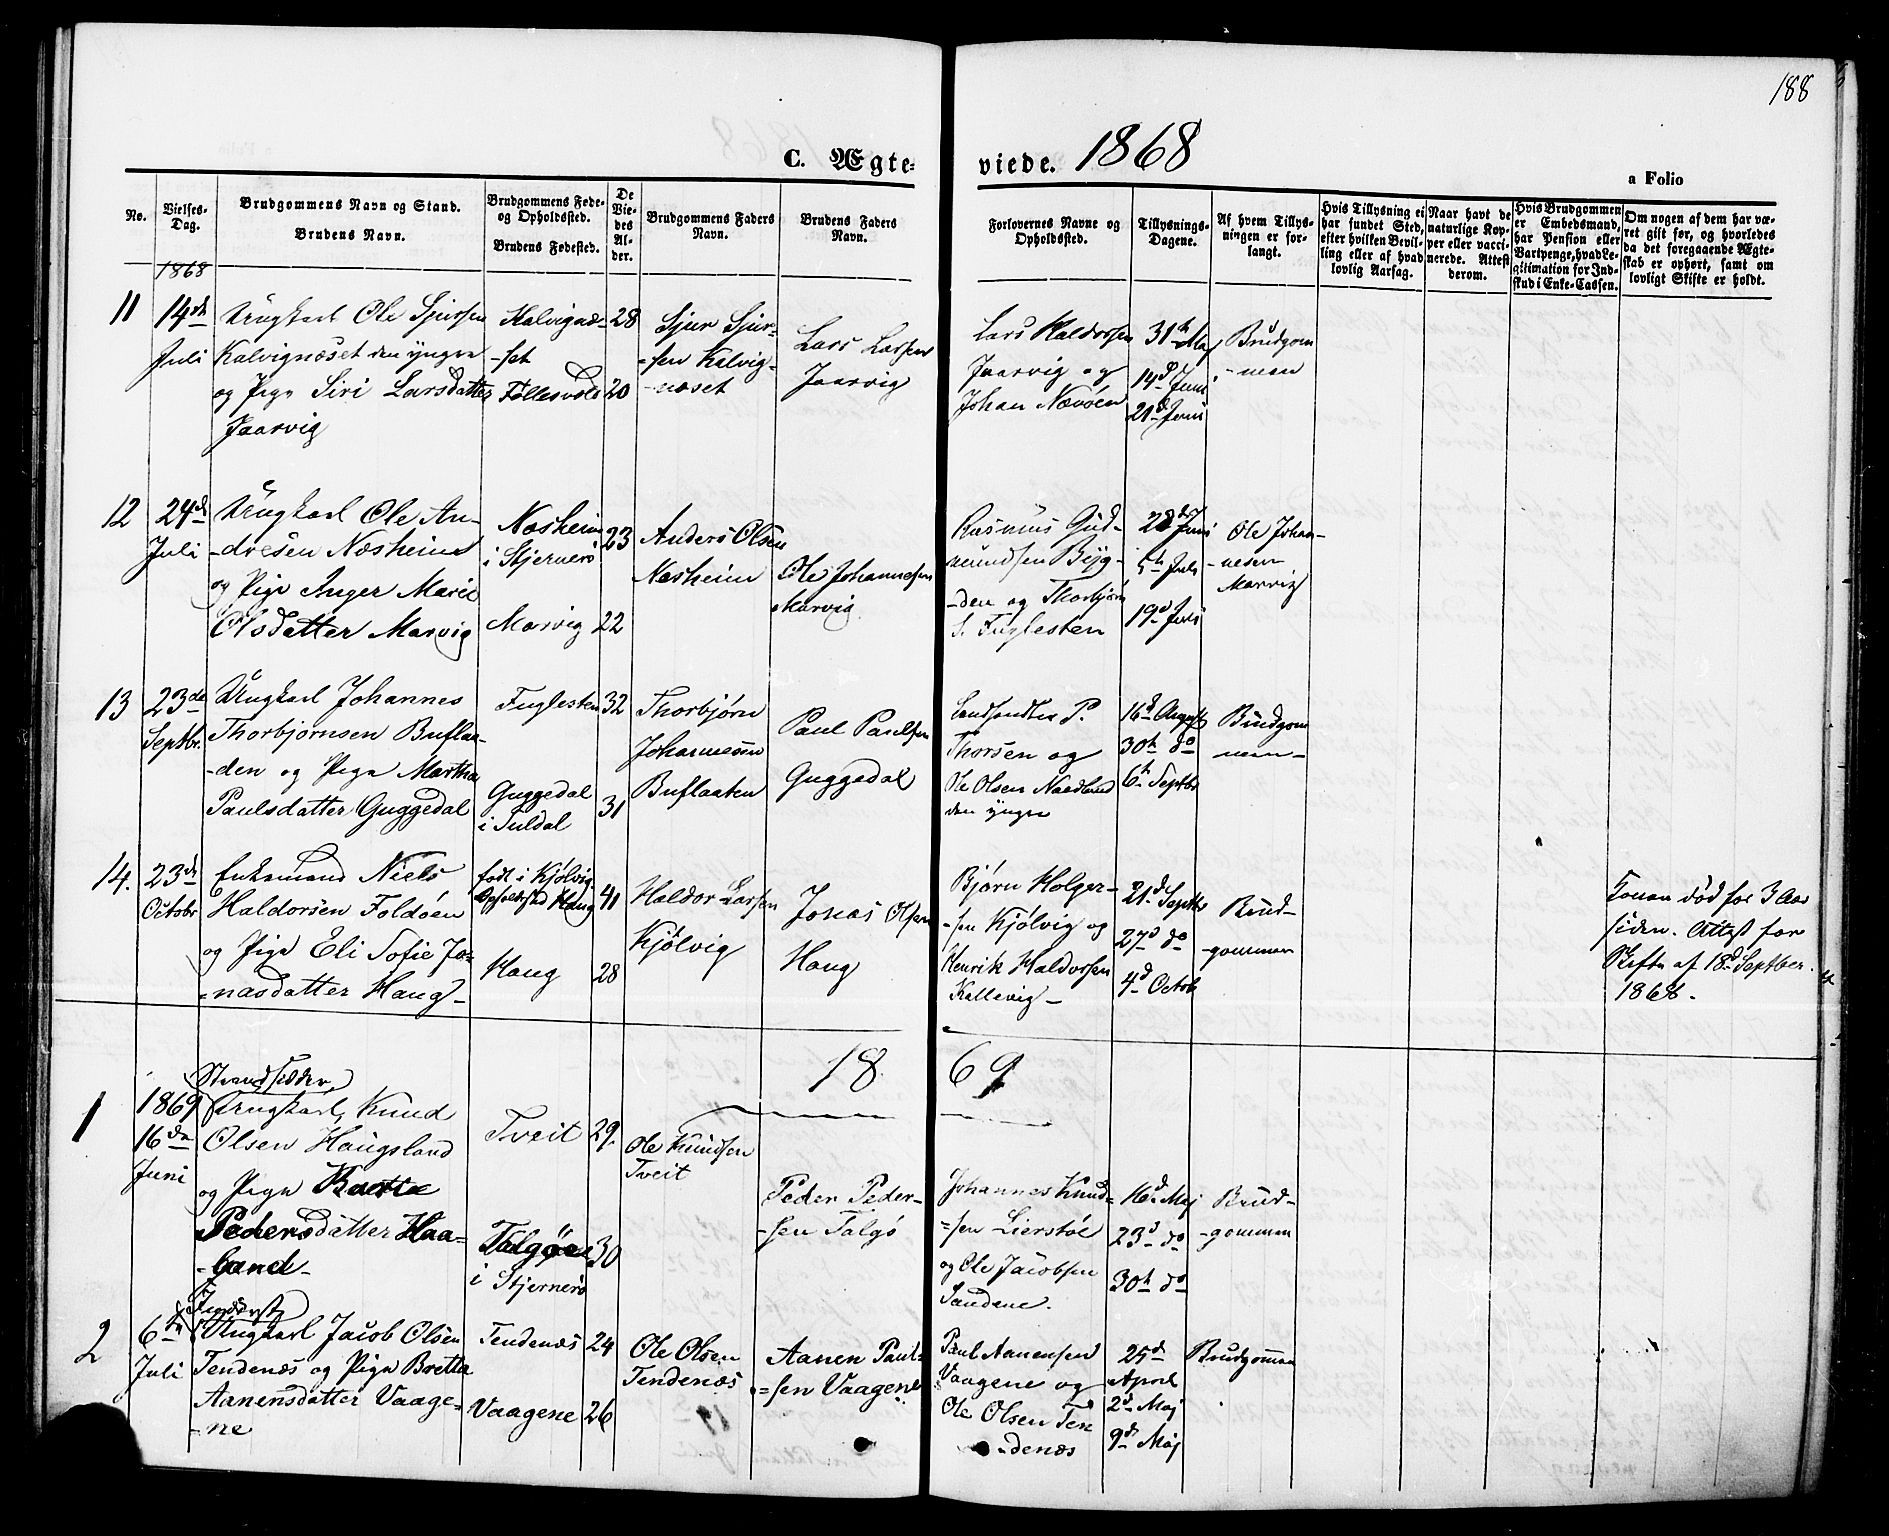 188
C. Ægte-
viede. 1868
a Folio
No.
Vielses-
Dag.
Brudgommens Navn og Stand.
Brudens Navn.
Brudgommens Føde-
og Opholdssted.
Brudens Fødested.
De
Vie-
des
Al-
der.
Brudgommens Faders
Navn.
Brudens Faders
Navn.
Forlovernes Navne og
Opholdssted.
Tillysnings-
Dagene.
Af hvem Tillys-
ningen er for-
langt.
Hvis Tillysning ei
har fundet Sted,
efter hvilken Bevil-
ling eller af hvad
lovlig Aarsag.
Naar havt de
naturlige Kop-
per eller vacci-
nerede. Attest
derom.
Hvis Brudgommen
er Embedsmand,
har Pension eller
Vartpenge, hvad Le-
gitimation for Ind-
skud i Enke-Cassen.
Om nogen af dem har væ-
ret gift før, og hvorledes
da det foregaaende Ægte-
skab er ophørt, samt om
lovligt Skifte er holdt.
1868
11
14de
Juli
Ungkarl Ole Sjursen
Kalvignæset den yngre
og Pige Siri Larsdatter
Jaarvig
Kalvignæ-
-set
Føllesvold
28
20
Sjur Sjur-
-sen Kalvig-
-næset
Lars Larsen
Jaarvig
Lars Haldorsen
Jaarvig og
Johan Nævøen
31te Maj
14d Juni
21d Juni
Brudgom
-men
12
24de
Juli
Ungkarl Ole An-
-dresen Næsheim
og Pige Inger Marie
Olsdatter Marvig
Næsheim
i Stjernerø
Marvig
23
22
Anders Olsen
Næsheim
Ole Johannesen
Marvig
Rasmus Gud-
mundsen Byg-
-den og Thorbjørn
S. Fuglesten
28de Juni
5te Juli
19d Juli
Ole Johan-
-nesen
Marvig
13
23de
Septbr.
Ungkarl Johannes
Thorbjørnsen Buflaa-
-den og Pige Martha
Paulsdatter Guggedal
Fuglesten
Guggedal
i Suldal
32
31
Thorbjørn
Johannesen
Buflaaten
Paul Paulsen
Guggedal
Landhandler P.
Thorsen og
Ole Olsen Nædlund
den yngre
16d August
30te do
6te Septbr
Brudgom
men-
14.
23de
Octobr
Enkemand Niels
Haldorsen Foldøen
og Pige Eli Sofie Jo-
-nasdatter Haug-
født i Kjølvig
Opholdssted Haug
Haug
41
28
Haldor Larsen
Kjølvig
Jonas Olsen
Haug
Bjørn Holger-
-sen Kjølvig og
Henrik Haldorsen
Kallevig-
21d Septbr
27d do
4d Octob
Brud-
-gommen
Konen død for 3 Aar
siden. Attest for
Skifte af 18d Septber.
1868.
18 69
1
1869
16de
Juni
Strandsidder
Ungkarl, Knud
Olsen Haugsland
og Pige Berta
Pedersdatter Haa-
-land-
Tveit
Talgøen
i Stjernerø
29.
30
Ole Knudsen
Tveit
Peder Peder-
-sen Talgø
Johannes Knud-
-sen Lierstøl
og Ole Jacobsen
Sandene.
16d Maj
23d do
30te do
Brud-
-gommen
2
6te
Juli
Inderst
Ungkarl Jacob Olsen
Tendenæs og Pige Bretta
Aanensdatter Vaage-
-ne
Tendenæs
Vaagene
24
26
Ole Olsen
Tendenæs
Aanen Paul-
-sen Vaagene
Paul Aanensen
Vaagene og
Ole Olsen Ten
-denæs
25d
April
2d Maj
9de Maj
Brudgommen